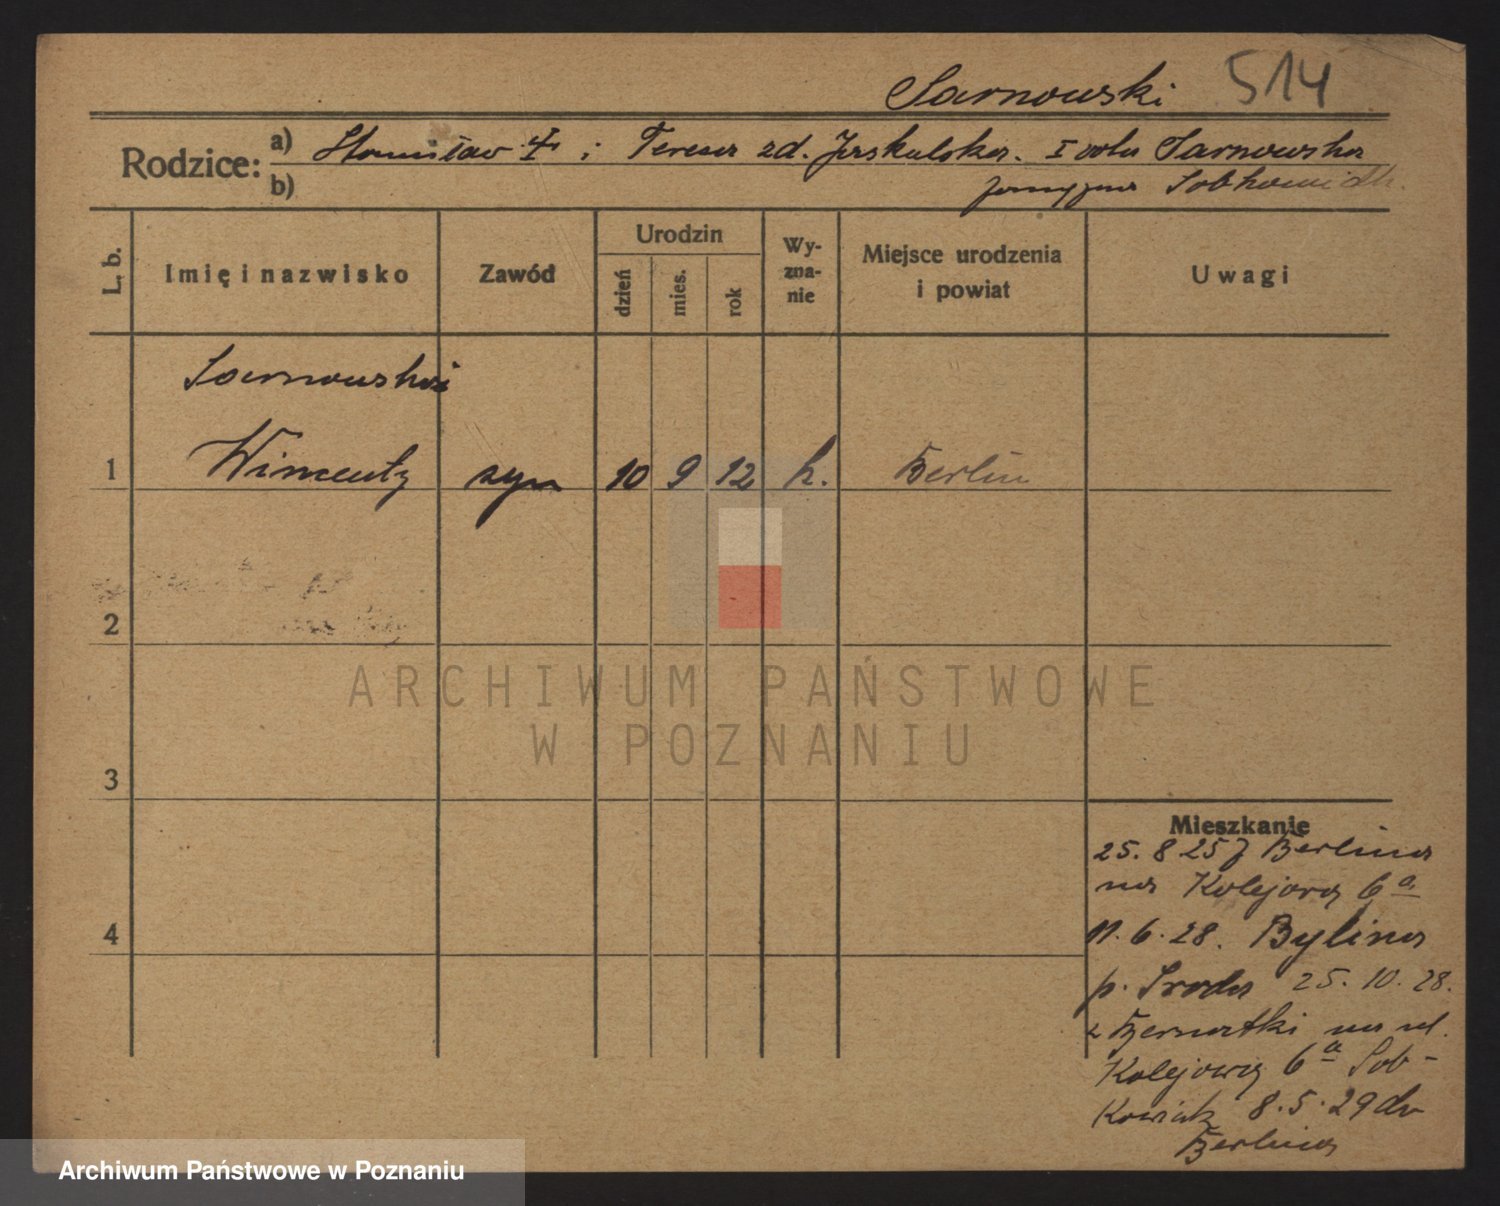 Sarnowski 514
Rodzice: a) Stanisław i Teresa zd. Jaskulska. I voto Sarnowska
b) Sobkowiak
L. b. Imię i nazwisko Zawód Urodzin Wyznanie Miejsce urodzenia i powiat Uwagi
dzień mies. rok
Sarnowski
1 Wincenty syn 10 9 12 k. Berlin
2
3
Mieszkanie
25. 8 25 z Berlina
na Kolejową 6a
4
11. 6. 28. Bylina
p. Sroda 25. 10. 28.
z Bernatki na ul.
Kolejową 6a Sob-
kowiak 8. 5. 29 do
Berlina
ARCHIWUM PAŃSTWOWE
W POZNANIU
Archiwum Państwowe w Poznaniu